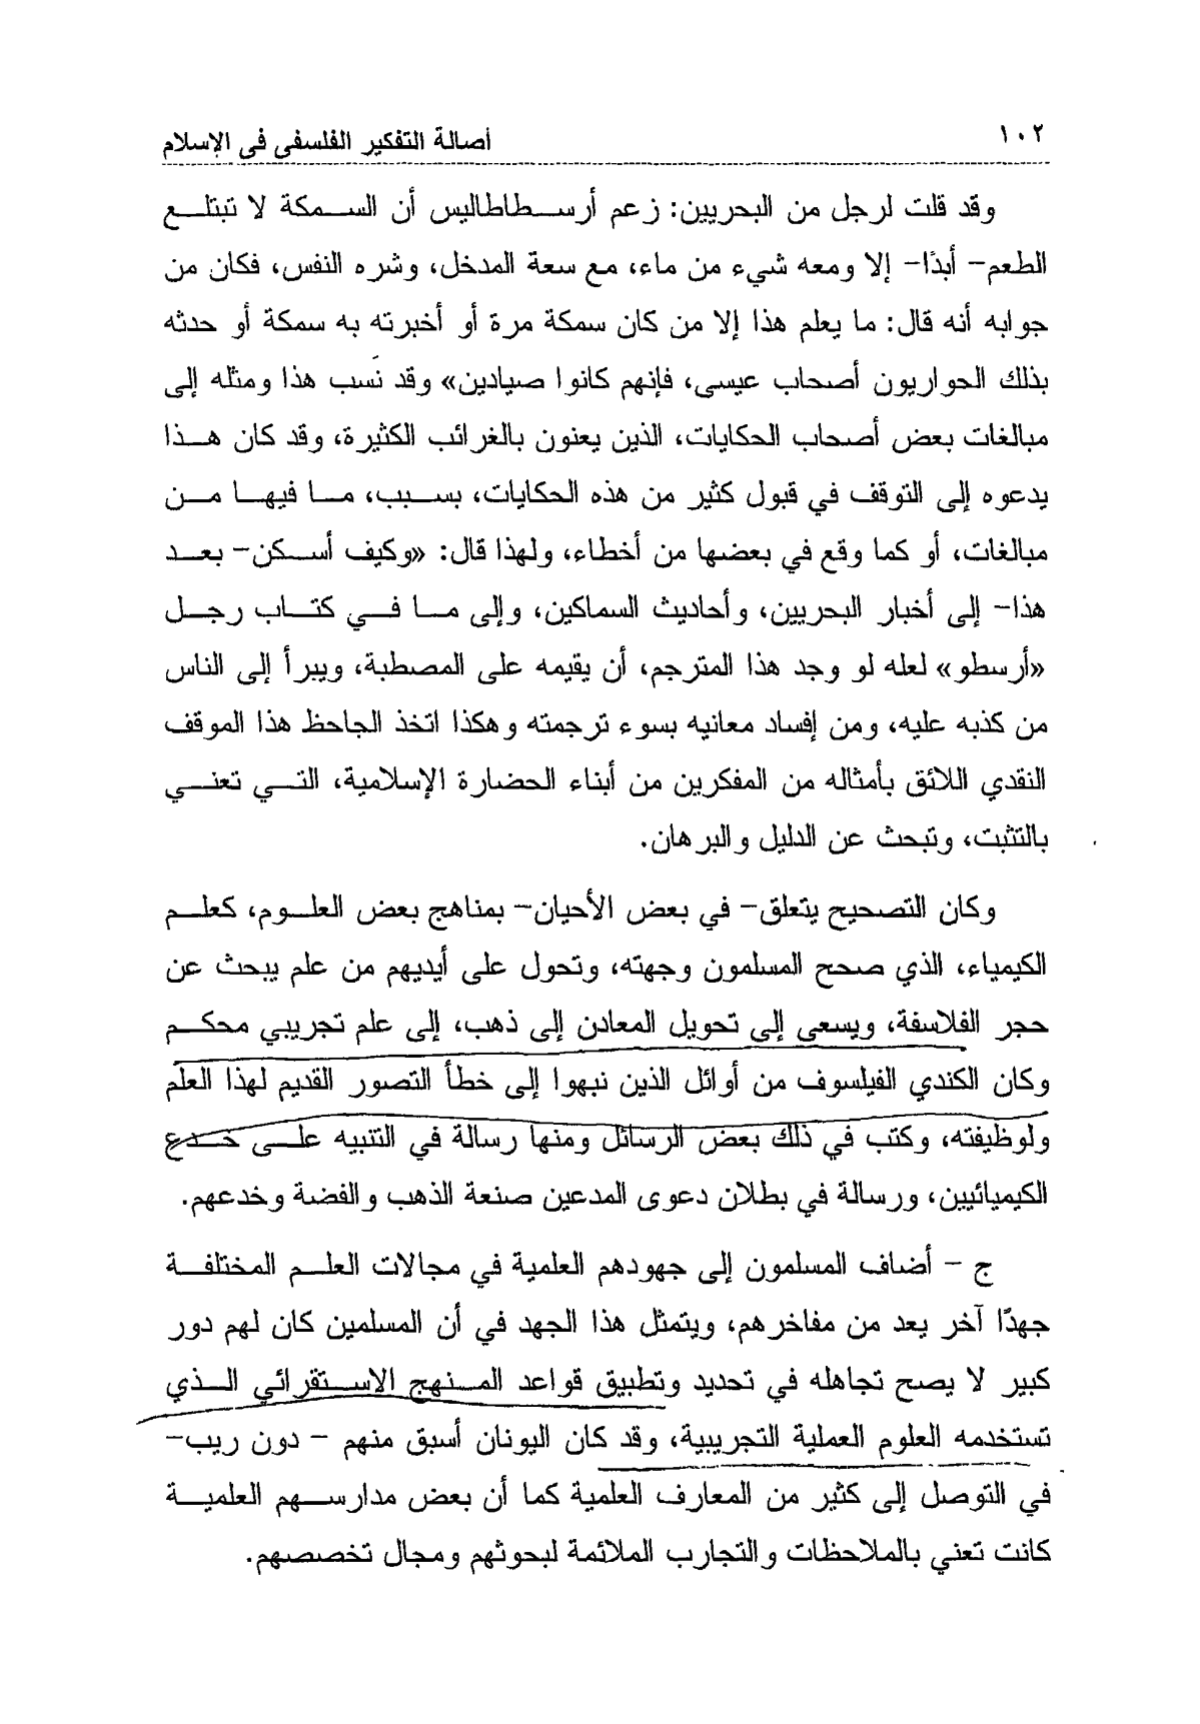 ١٠٢
أصالة التفكير الفلسفى فى الإسلام
وقد قلت لرجل من البحريين: زعم أرسطاطاليس أن السمكة لا تبتلع
الطعم- أبدًا- إلا ومعه شيء من ماء، مع سعة المدخل، وشره النفس، فكان من
جوابه أنه قال: ما يعلم هذا إلا من كان سمكة مرة أو أخبرته به سمكة أو حدثه
بذلك الحواريون أصحاب عيسى، فإنهم كانوا صيادين» وقد نَسب هذا ومثله إلى
مبالغات بعض أصحاب الحكايات، الذين يعنون بالغرائب الكثيرة، وقد كان هذا
يدعوه إلى التوقف في قبول كثير من هذه الحكايات، بسبب، ما فيها من
مبالغات، أو كما وقع في بعضها من أخطاء، ولهذا قال: «وكيف أسكن- بعد
هذا- إلى أخبار البحريين، وأحاديث السماكين، وإلى ما في كتاب رجل
«أرسطو» لعله لو وجد هذا المترجم، أن يقيمه على المصطبة، ويبرأ إلى الناس
من كذبه عليه، ومن إفساد معانيه بسوء ترجمته وهكذا اتخذ الجاحظ هذا الموقف
النقدي اللائق بأمثاله من المفكرين من أبناء الحضارة الإسلامية، التي تعني
بالتثبت، وتبحث عن الدليل والبرهان.
وكان التصحيح يتعلق- في بعض الأحيان- بمناهج بعض العلوم، كعلم
الكيمياء، الذي صحح المسلمون وجهته، وتحول على أيديهم من علم يبحث عن
حجر الفلاسفة، ويسعى إلى تحويل المعادن إلى ذهب، إلى علم تجريبي محكم
وكان الكندي الفيلسوف من أوائل الذين نبهوا إلى خطأ التصور القديم لهذا العلم
ولوظيفته، وكتب في ذلك بعض الرسائل ومنها رسالة في التنبيه على خدع
الكيميائيين، ورسالة في بطلان دعوى المدعين صنعة الذهب والفضة وخدعهم.
ج - أضاف المسلمون إلى جهودهم العلمية في مجالات العلم المختلفة
جهدًا آخر يعد من مفاخرهم، ويتمثل هذا الجهد في أن المسلمين كان لهم دور
كبير لا يصح تجاهله في تحديد وتطبيق قواعد المنهج الاستقرائي الذي
تستخدمه العلوم العملية التجريبية، وقد كان اليونان أسبق منهم - دون ريب-
في التوصل إلى كثير من المعارف العلمية كما أن بعض مدارسهم العلمية
كانت تعني بالملاحظات والتجارب الملائمة لبحوثهم ومجال تخصصهم.